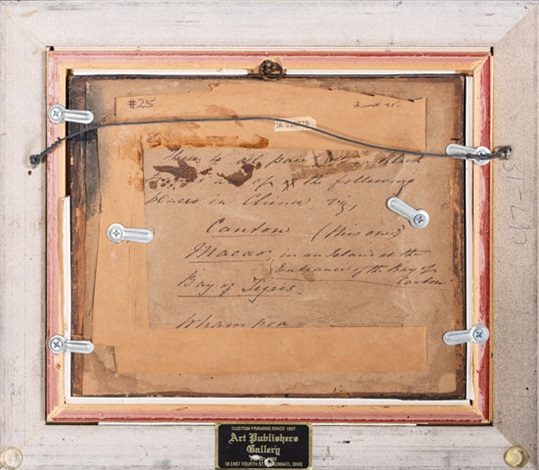 #25
These to all
of the following
places in China viz,
Canton (this one)
Macao, in an Island at the
Entrance of the Bay of
Canton
Bay of Tigris
Whampoa
CUSTOM FRAMING SINCE 1897
Art Publishers
Gallery
18 EAST FOURTH ST. CINCINNATI, OHIO